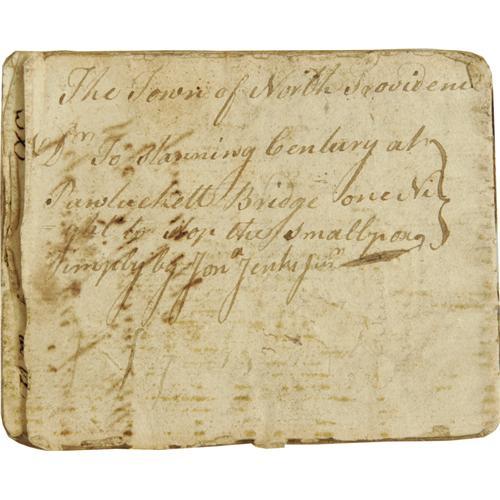 The Town of North Providenc
Dr To Stanning Century at
Pawtuckett Bridge one Ni
ght to stop the smallpox
Simply by Jona Jenks Junr